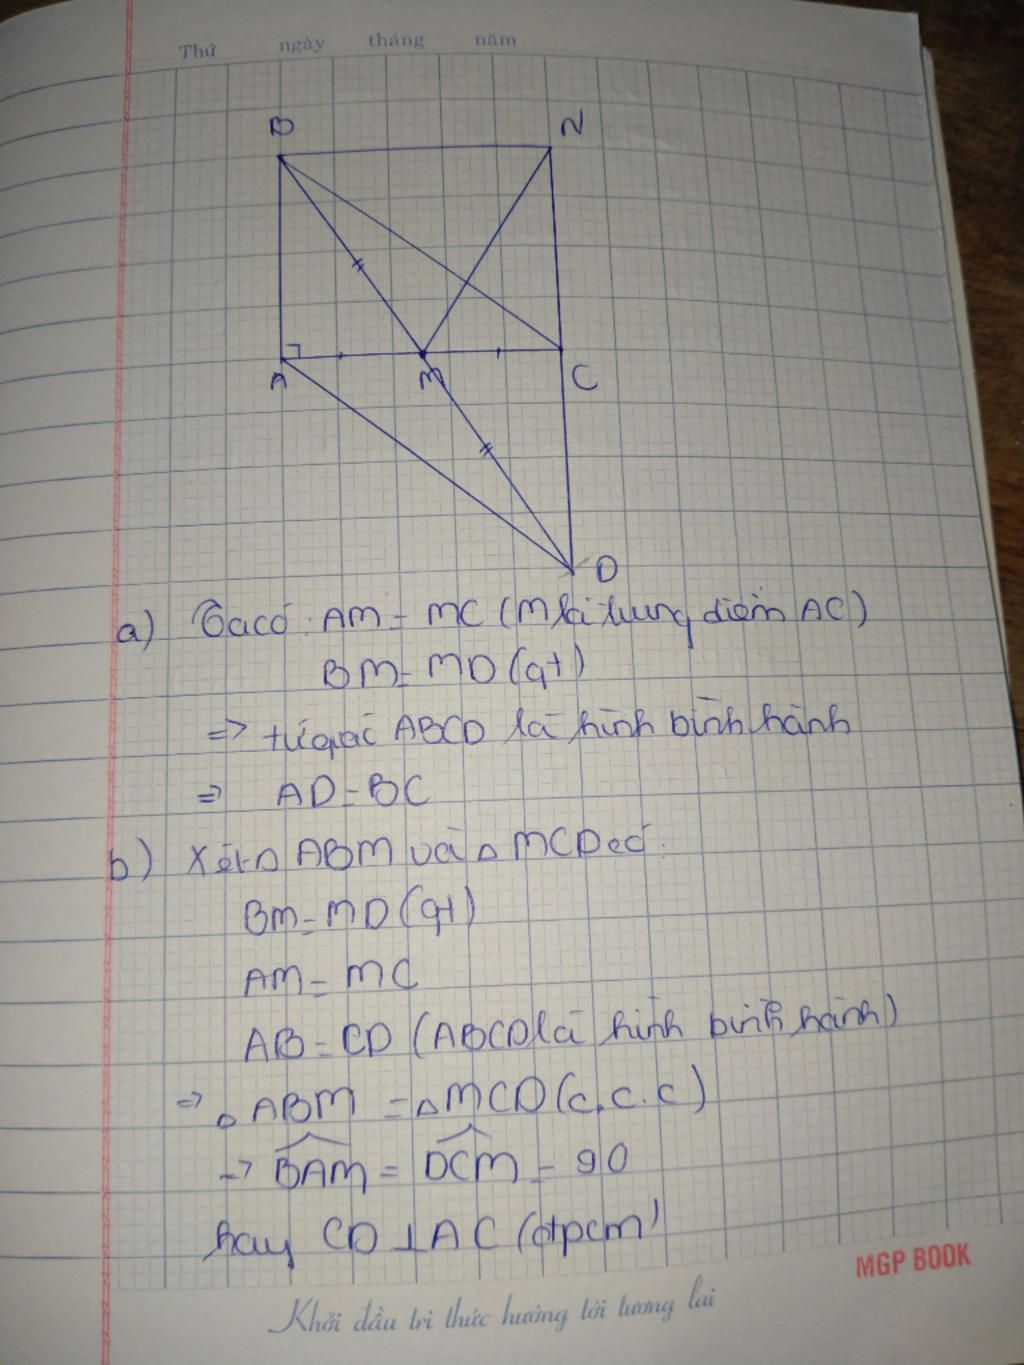 Thứ ngày tháng năm
B N
A M C
D
a) Ta có: AM = MC (M là trung điểm AC)
BM = MD (gt)
=> tứ giác ABCD là hình bình hành
=> AD = BC
b) Xét △ ABM và △ MCD có:
BM = MD (gt)
AM = MC
AB = CD (ABCD là hình bình hành)
=> △ ABM = △ MCD (c.c.c)
-> BAM = DCM = 90
hay CD ⊥ AC (đtpcm)
MGP BOOK
Khởi đầu tri thức hướng tới tương lai